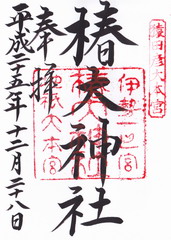 猿田彦大本宮
椿大神社
伊勢一之宮
奉拝
平成二五年十二月二十八日